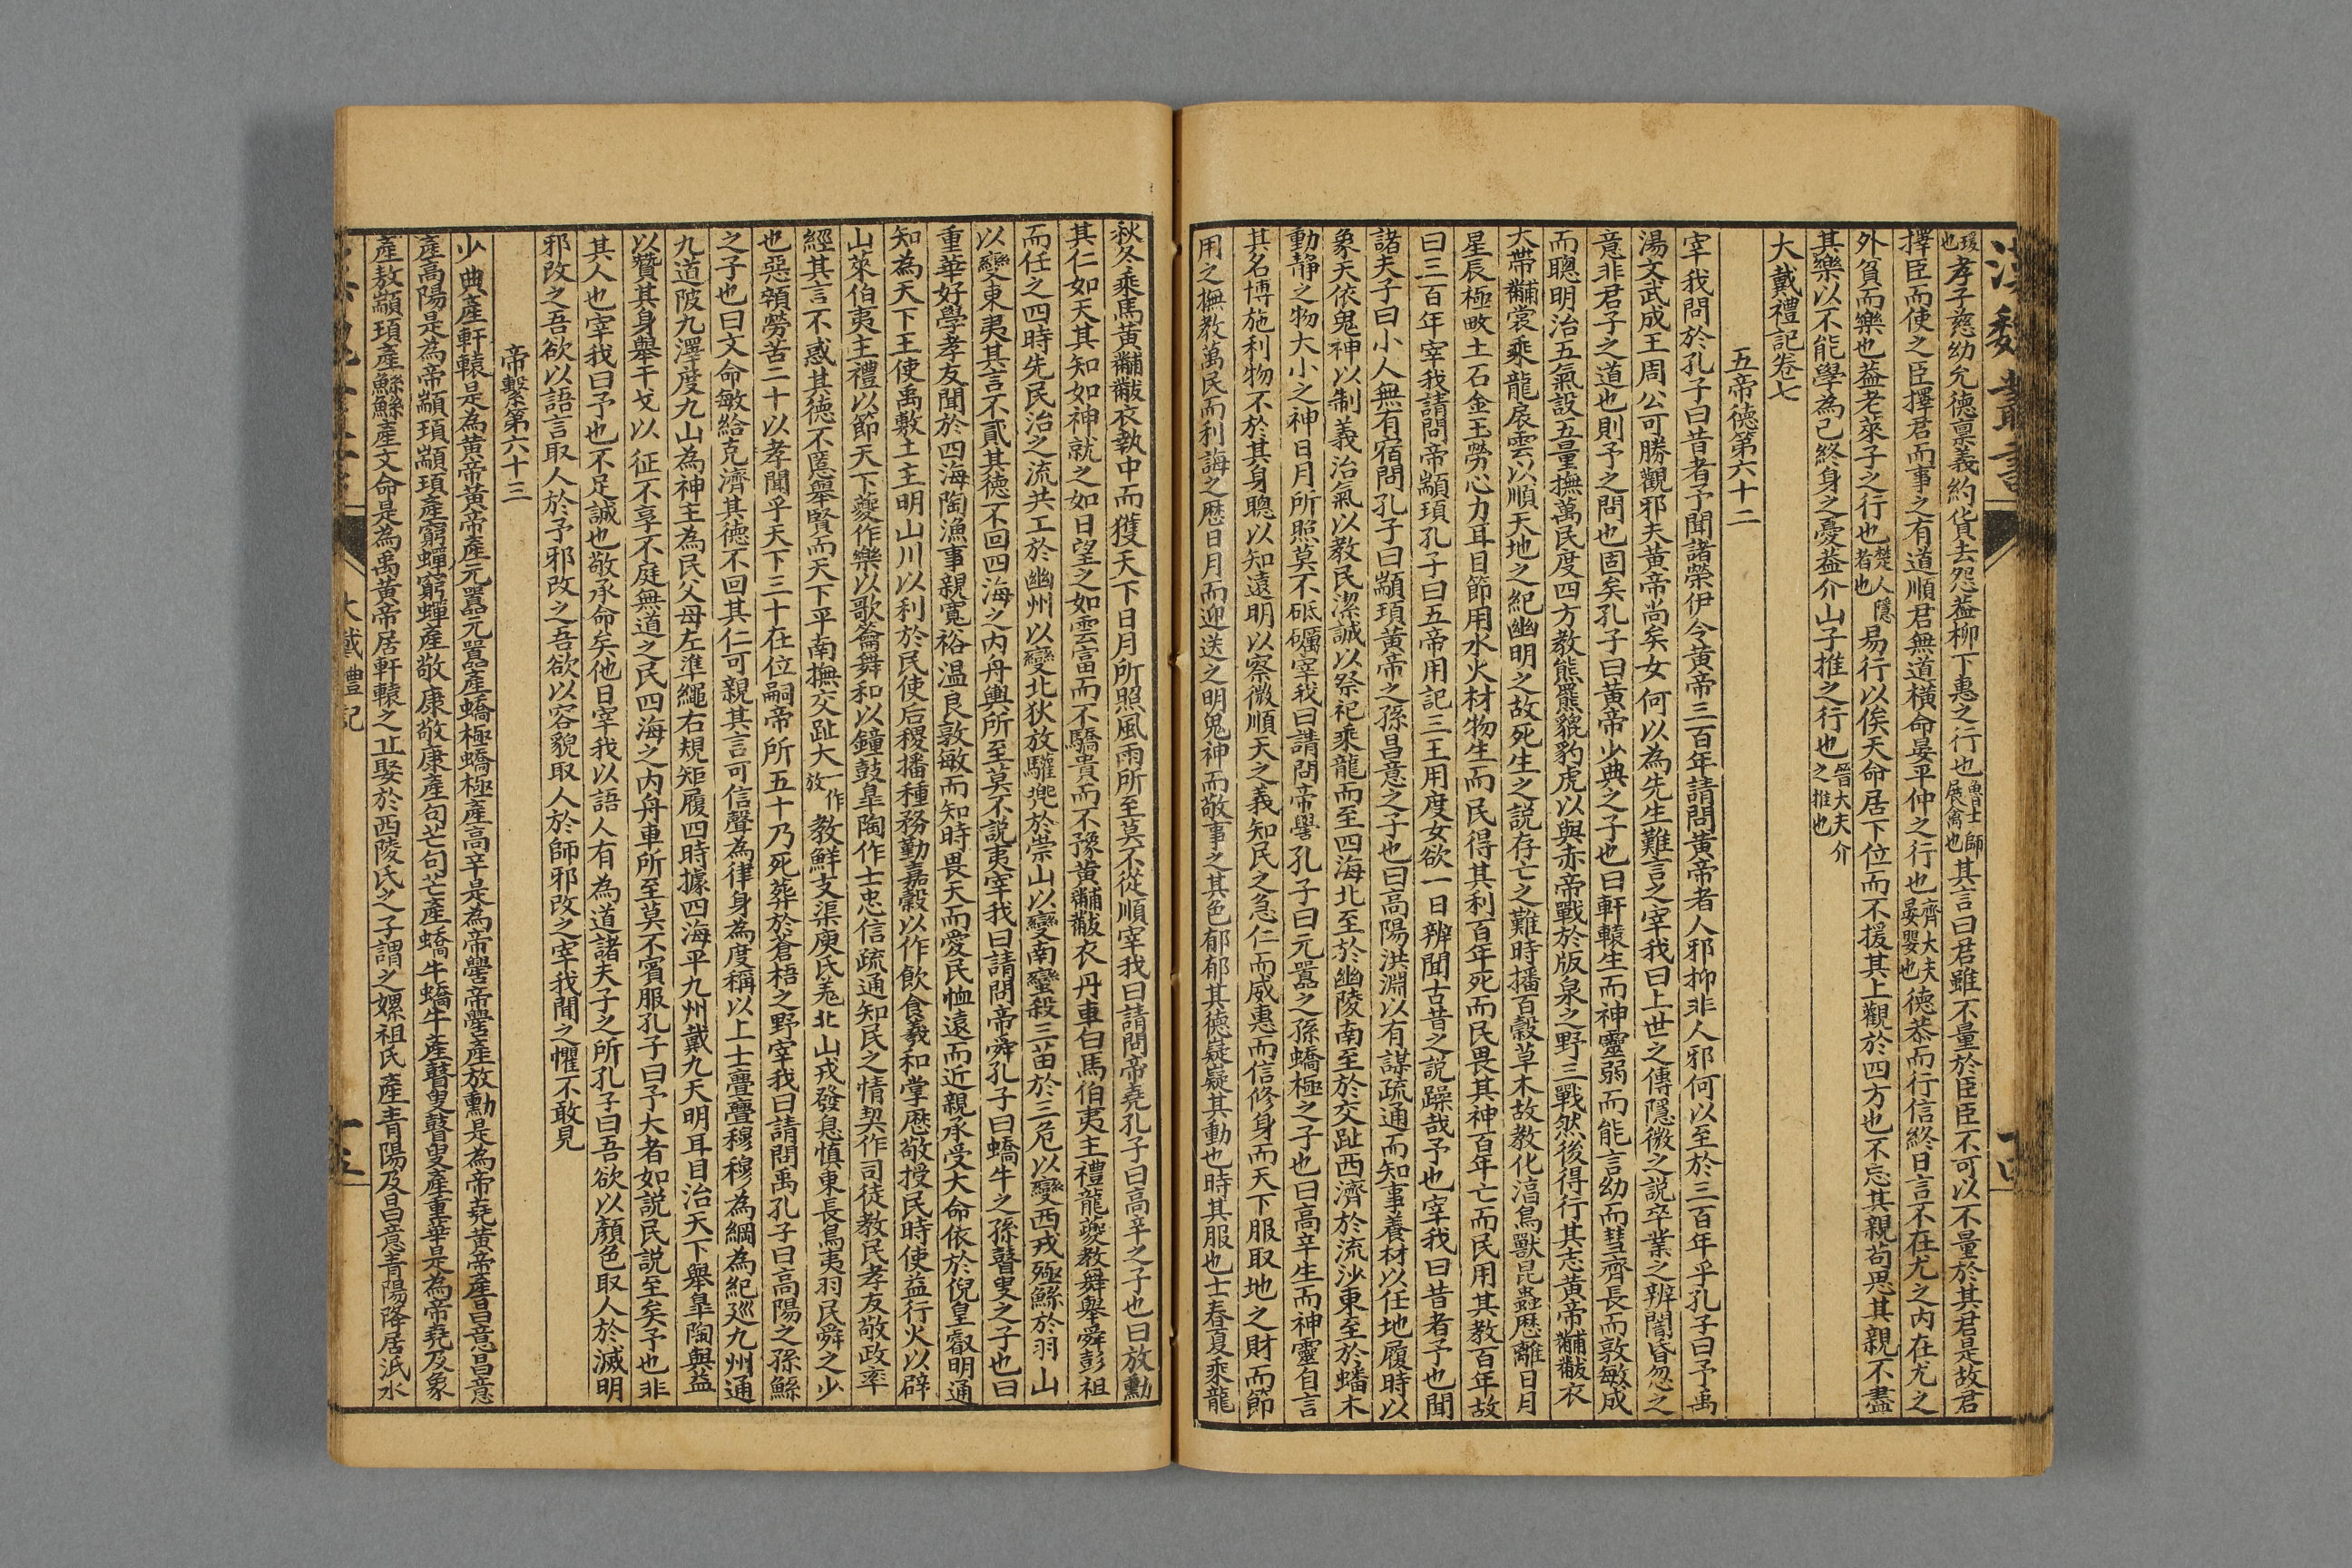 漢魏叢書
瑗也孝子慈幼允德稟義約貨去怨蓋柳下惠之行也魯士師展禽也其言曰君雖不量於臣臣不可以不量於其君是故君
擇臣而使之臣擇君而事之有道順君無道橫命晏平仲之行也齊大夫晏嬰也德恭而行信終日言不在尤之內在尤之
外貧而樂也蓋老萊子之行也楚人隱者也易行以俟天命居下位而不援其上觀於四方也不忘其親苟思其親不盡
其樂以不能學為己終身之憂蓋介山子推之行也晉大夫介之推也
大戴禮記卷七
五帝德第六十二
宰我問於孔子曰昔者予聞諸榮伊令黃帝三百年請問黃帝者人邪抑非人邪何以至於三百年乎孔子曰予禹
湯文武成王周公可勝觀邪夫黃帝尚矣女何以為先生難言之宰我曰上世之傳隱微之說卒業之辨闇昏忽之
意非君子之道也則予之問也固矣孔子曰黃帝少典之子也曰軒轅生而神靈弱而能言幼而彗齊長而敦敏成
而聰明治五氣設五量撫萬民度四方教熊羆貔豹虎以與赤帝戰於版泉之野三戰然後得行其志黃帝黼黻衣
大帶黼裳乘龍扆雲以順天地之紀幽明之故死生之說存亡之難時播百穀草木故教化淳鳥獸昆蟲歷離日月
星辰極畋土石金玉勞心力耳目節用水火材物生而民得其利百年死而民畏其神百年亡而民用其教百年故
曰三百年宰我請問帝顓頊孔子曰五帝用記三王用度女欲一日辨聞古昔之說躁哉予也宰我曰昔者予也聞
諸夫子曰小人無有宿問孔子曰顓頊黃帝之孫昌意之子也曰高陽洪淵以有謀疏通而知事養材以任地履時以
象天依鬼神以制義治氣以教民潔誠以祭祀乘龍而至四海北至於幽陵南至於交趾西濟於流沙東至於蟠木
動靜之物大小之神日月所照莫不砥礪宰我曰請問帝嚳孔子曰元囂之孫蟜極之子也曰高辛生而神靈自言
其名博施利物不於其身聰以知遠明以察微順天之義知民之急仁而威惠而信修身而天下服取地之財而節
用之撫教萬民而利誨之歷日月而迎送之明鬼神而敬事之其色郁郁其德嶷嶷其動也時其服也士春夏乘龍
秋冬乘馬黃黼黻衣執中而獲天下日月所照風雨所至莫不從順宰我曰請問帝堯孔子曰高辛之子也曰放勳
其仁如天其知如神就之如日望之如雲富而不驕貴而不豫黃黼黻衣丹車白馬伯夷主禮龍夔教舞舉舜彭祖
而任之四時先民治之流共工於幽州以變北狄放驩兜於崇山以變南蠻殺三苗於三危以變西戎殛鯀於羽山
以變東夷其言不貳其德不回四海之內舟輿所至莫不說夷宰我曰請問帝舜孔子曰蟜牛之孫瞽叟之子也曰
重華好學孝友聞於四海陶漁事親寬裕溫良敦敏而知時畏天而愛民恤遠而近親承受大命依於倪皇叡明通
知為天下王使禹敷土主明山川以利於民使后稷播種務勤嘉穀以作飲食羲和掌歷敬授民時使益行火以辟
山萊伯夷主禮以節天下夔作樂以歌籥舞和以鐘鼓皋陶作士忠信疏通知民之情契作司徒教民孝友敬政率
經其言不惑其德不慝舉賢而天下平南撫交趾大一作放教鮮支渠廋氏羌北山戎發息慎東長鳥夷羽民舜之少
也惡頟勞苦二十以孝聞乎天下三十在位嗣帝所五十乃死葬於蒼梧之野宰我曰請問禹孔子曰高陽之孫鯀
之子也曰文命敏給克濟其德不回其仁可親其言可信聲為律身為度稱以上士亹亹穆穆為綱為紀巡九州通
九道陂九澤度九山為神主為民父母左準繩右規矩履四時據四海平九州戴九天明耳目治天下舉皋陶與益
以贊其身舉干戈以征不享不庭無道之民四海之內舟車所至莫不賓服孔子曰予大者如說民說至矣予也非
其人也宰我曰予也不足誠也敬承命矣他日宰我以語人有為道諸夫子之所孔子曰吾欲以顏色取人於滅明
邪改之吾欲以語言取人於予邪改之吾欲以容貌取人於師邪改之宰我聞之懼不敢見
帝繫第六十三
少典產軒轅是為黃帝黃帝產元囂元囂產蟜極蟜極產高辛是為帝嚳帝嚳產放勳是為帝堯黃帝產昌意昌意
產高陽是為帝顓頊顓頊產窮蟬窮蟬產敬康敬康產句芒句芒產蟜牛蟜牛產瞽叟瞽叟產重華是為帝堯及象
產敖顓頊產鯀鯀產文命是為禹黃帝居軒轅之丘娶於西陵氏之子謂之嫘祖氏產青陽及昌意青陽降居泜水
大戴禮記